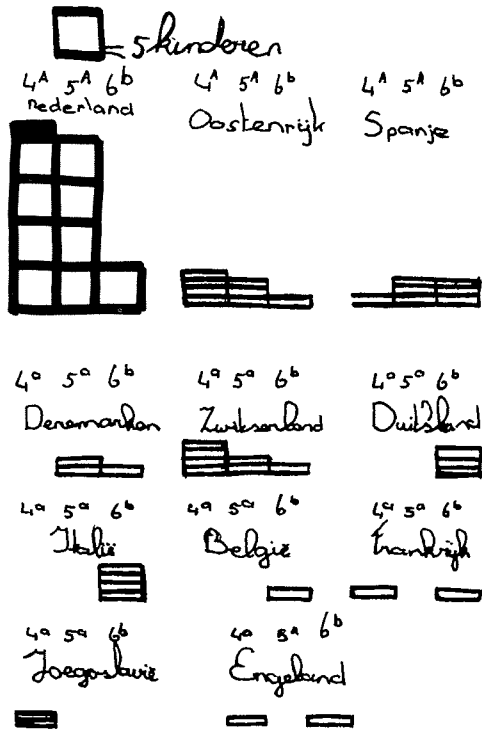 = 5 kinderen
4^A 5^A 6^b
nederland
4^A 5^A 6^b
Oostenrijk
4^A 5^A 6^b
Spanje
4^a 5^a 6^b
Denemarken
4^a 5^a 6^b
Zwitserland
4^a 5^a 6^b
Duitsland
4^a 5^a 6^b
Italië
4^a 5^a 6^b
België
4^a 5^a 6^b
Frankrijk
4^a 5^a 6^b
Joegoslavië
4^a 5^A 6^b
Engeland